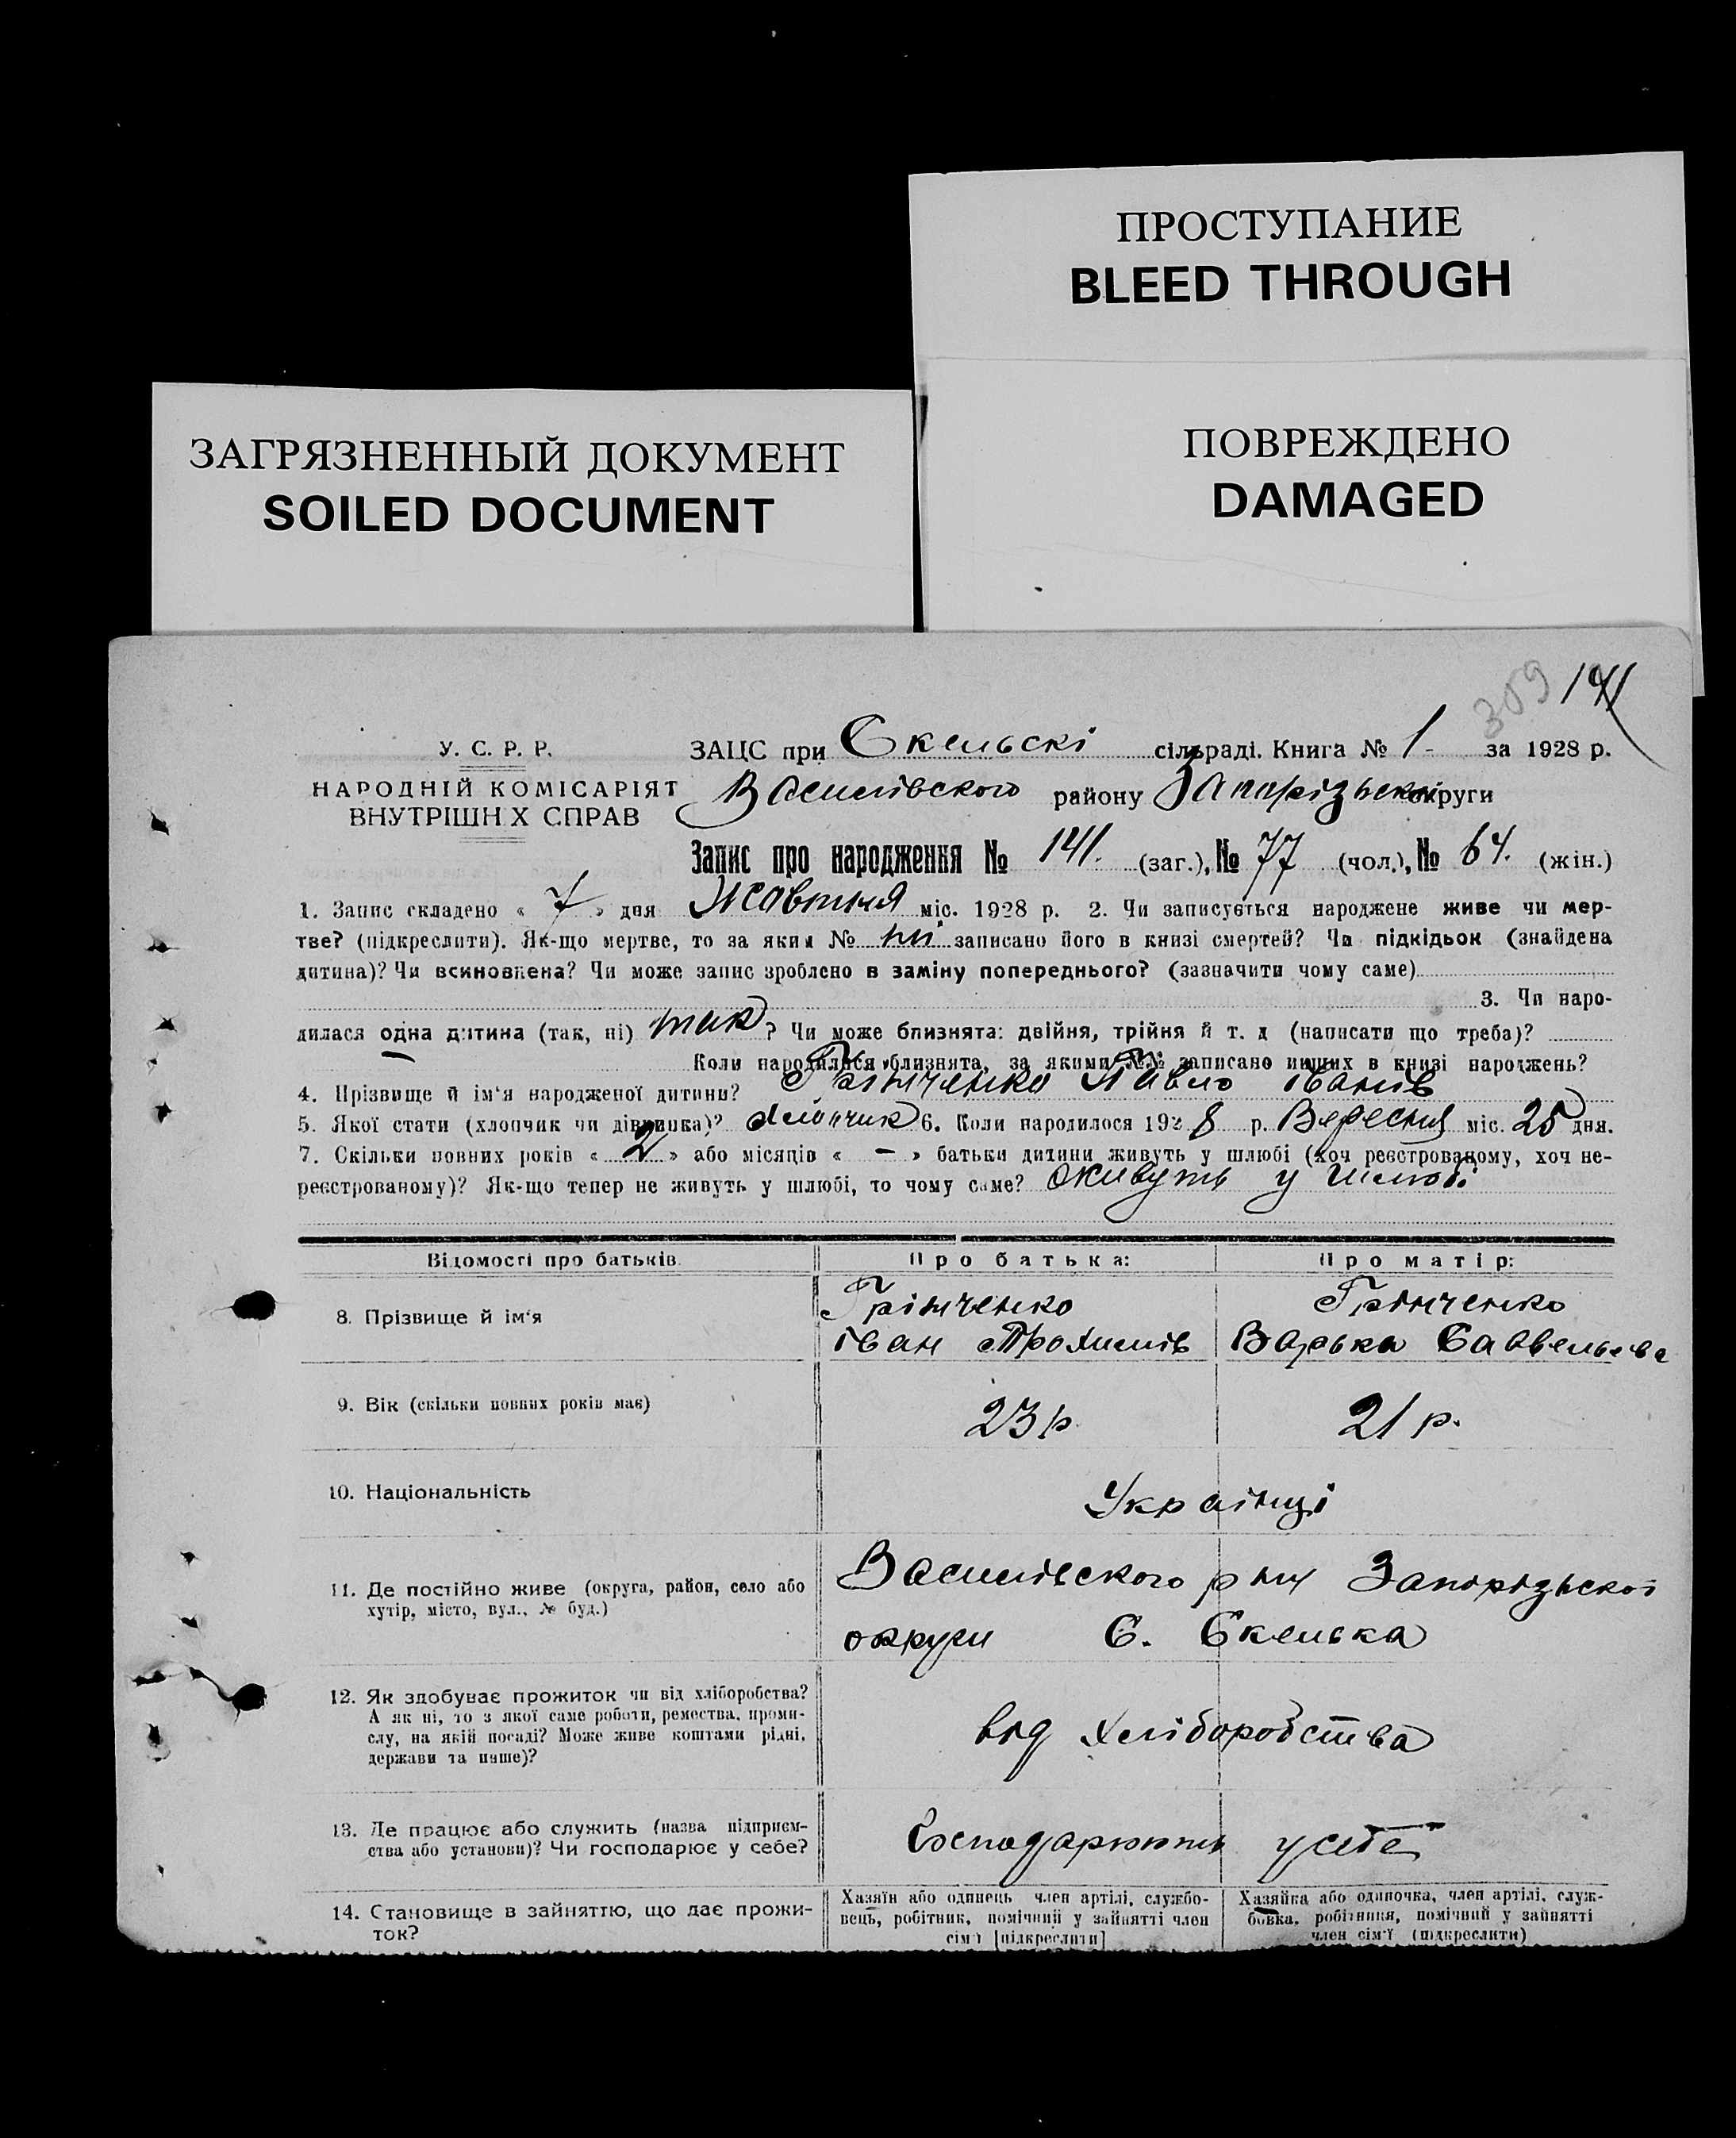 ПРОСТУПАНИЕ
BLEED THROUGH
ЗАГРЯЗНЕННЫЙ ДОКУМЕНТ
SOILED DOCUMENT
ПОВРЕЖДЕНО
DAMAGED
309 141
У. С. Р. Р.
НАРОДНІЙ КОМІСАРІЯТ
ВНУТРІШНІХ СПРАВ
ЗАЦС при Скельскі сільраді. Книга № 1 - за 1928 р.
Василівского району Запорізької округи
Запис про народження № 141. (заг.), № 77 (чол.), № 64. (жін.)
1. Запис складено « 7 » дня Жовтня міс. 1928 р. 2. Чи записується народжене живе чи мер-
тве? (підкреслити). Як-що мертве, то за яким № ні записано його в книзі смертей? Чи підкідьок (знайдена
дитина)? Чи всиновлена? Чи може запис зроблено в заміну попереднього? (зазначити чому саме)
3. Чи наро-
дилася одна дитина (так, ні) так ? Чи може близнята: двійня, трійня й т. д (написати що треба)?
Коли народилися близнята, за якими №№ записано инших в книзі народжень?
4. Прізвище й ім'я народженої дитини? Грінченко Павло Іванів
5. Якої стати (хлопчик чи дівчинка)? Хлопчик 6. Коли народилося 1928 р. Вересня міс. 25 дня.
7. Скільки повних років « 2 » або місяців « - » батьки дитини живуть у шлюбі (хоч реєстрованому, хоч не-
реєстрованому)? Як-що тепер не живуть у шлюбі, то чому саме? живуть у шлюбі
Відомості про батьків Про батька: Про матір:
8. Прізвище й ім'я Грінченко Грінченко
Іван Варька Савельєва
9. Вік (скільки повних років має) 23 р. 21 р.
10. Національність Українці
11. Де постійно живе (округа, район, село або Василівского р-ну Запорізької
хутір, місто, вул., № буд.) округи С. Скелька
12. Як здобуває прожиток чи від хліборобства?
А як ні, то з якої саме роботи, ремества, проми-
слу, на якій посаді? Може живе коштами рідні, від хліборобства
держави та инше)?
13. Де працює або служить (назва підприєм- Господарюють у себе
ства або установи)? Чи господарює у себе?
14. Становище в зайняттю, що дає прожи-
ток?
Хазяїн або одинець член артілі, службо-
вець, робітник, помічний у зайнятті член
сім'ї [підкреслити]
Хазяйка або одиночка, член артілі, служ-
бовка, робітниця, помічний у зайнятті
член сім'ї (підкреслити)